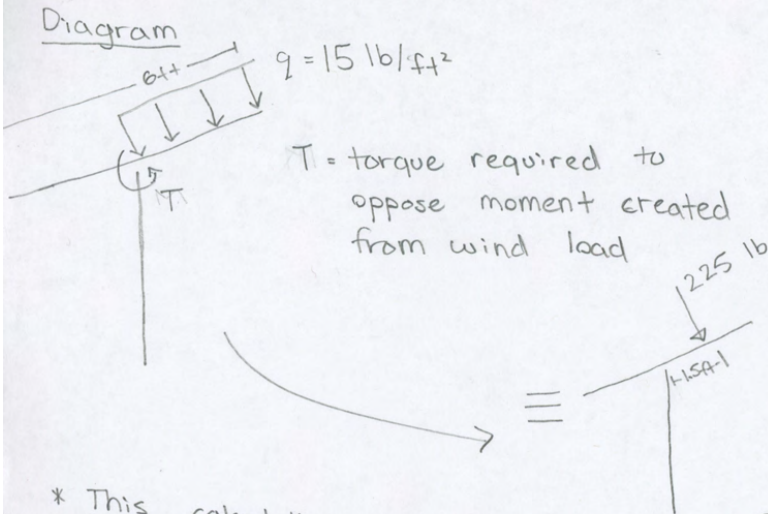 Diagram
6ft
q = 15 lb/ft²
T = torque required to
oppose moment created
from wind load
T
225 lb
1.5ft
≡
* This